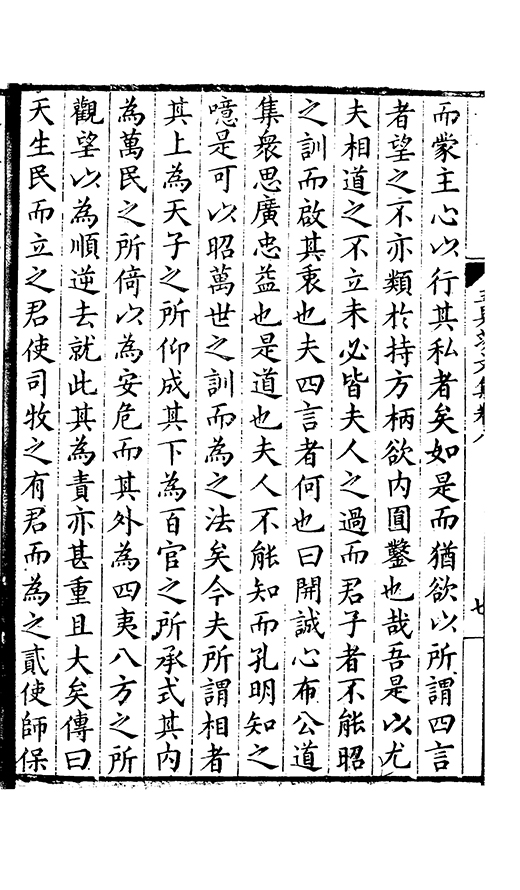 而蒙主心以行其私者矣如是而猶欲以所謂四言
者望之不亦類於持方柄欲内圓鑿也哉吾是以尤
夫相道之不立未必皆夫人之過而君子者不能昭
之訓而啟其衷也夫四言者何也曰開誠心布公道
集衆思廣忠益也是道也夫人不能知而孔明知之
噫是可以昭萬世之訓而為之法矣今夫所謂相者
其上為天子之所仰成其下為百官之所承式其内
為萬民之所倚以為安危而其外為四夷八方之所
觀望以為順逆去就此其為責亦甚重且大矣傳曰
天生民而立之君使司牧之有君而為之貳使師保